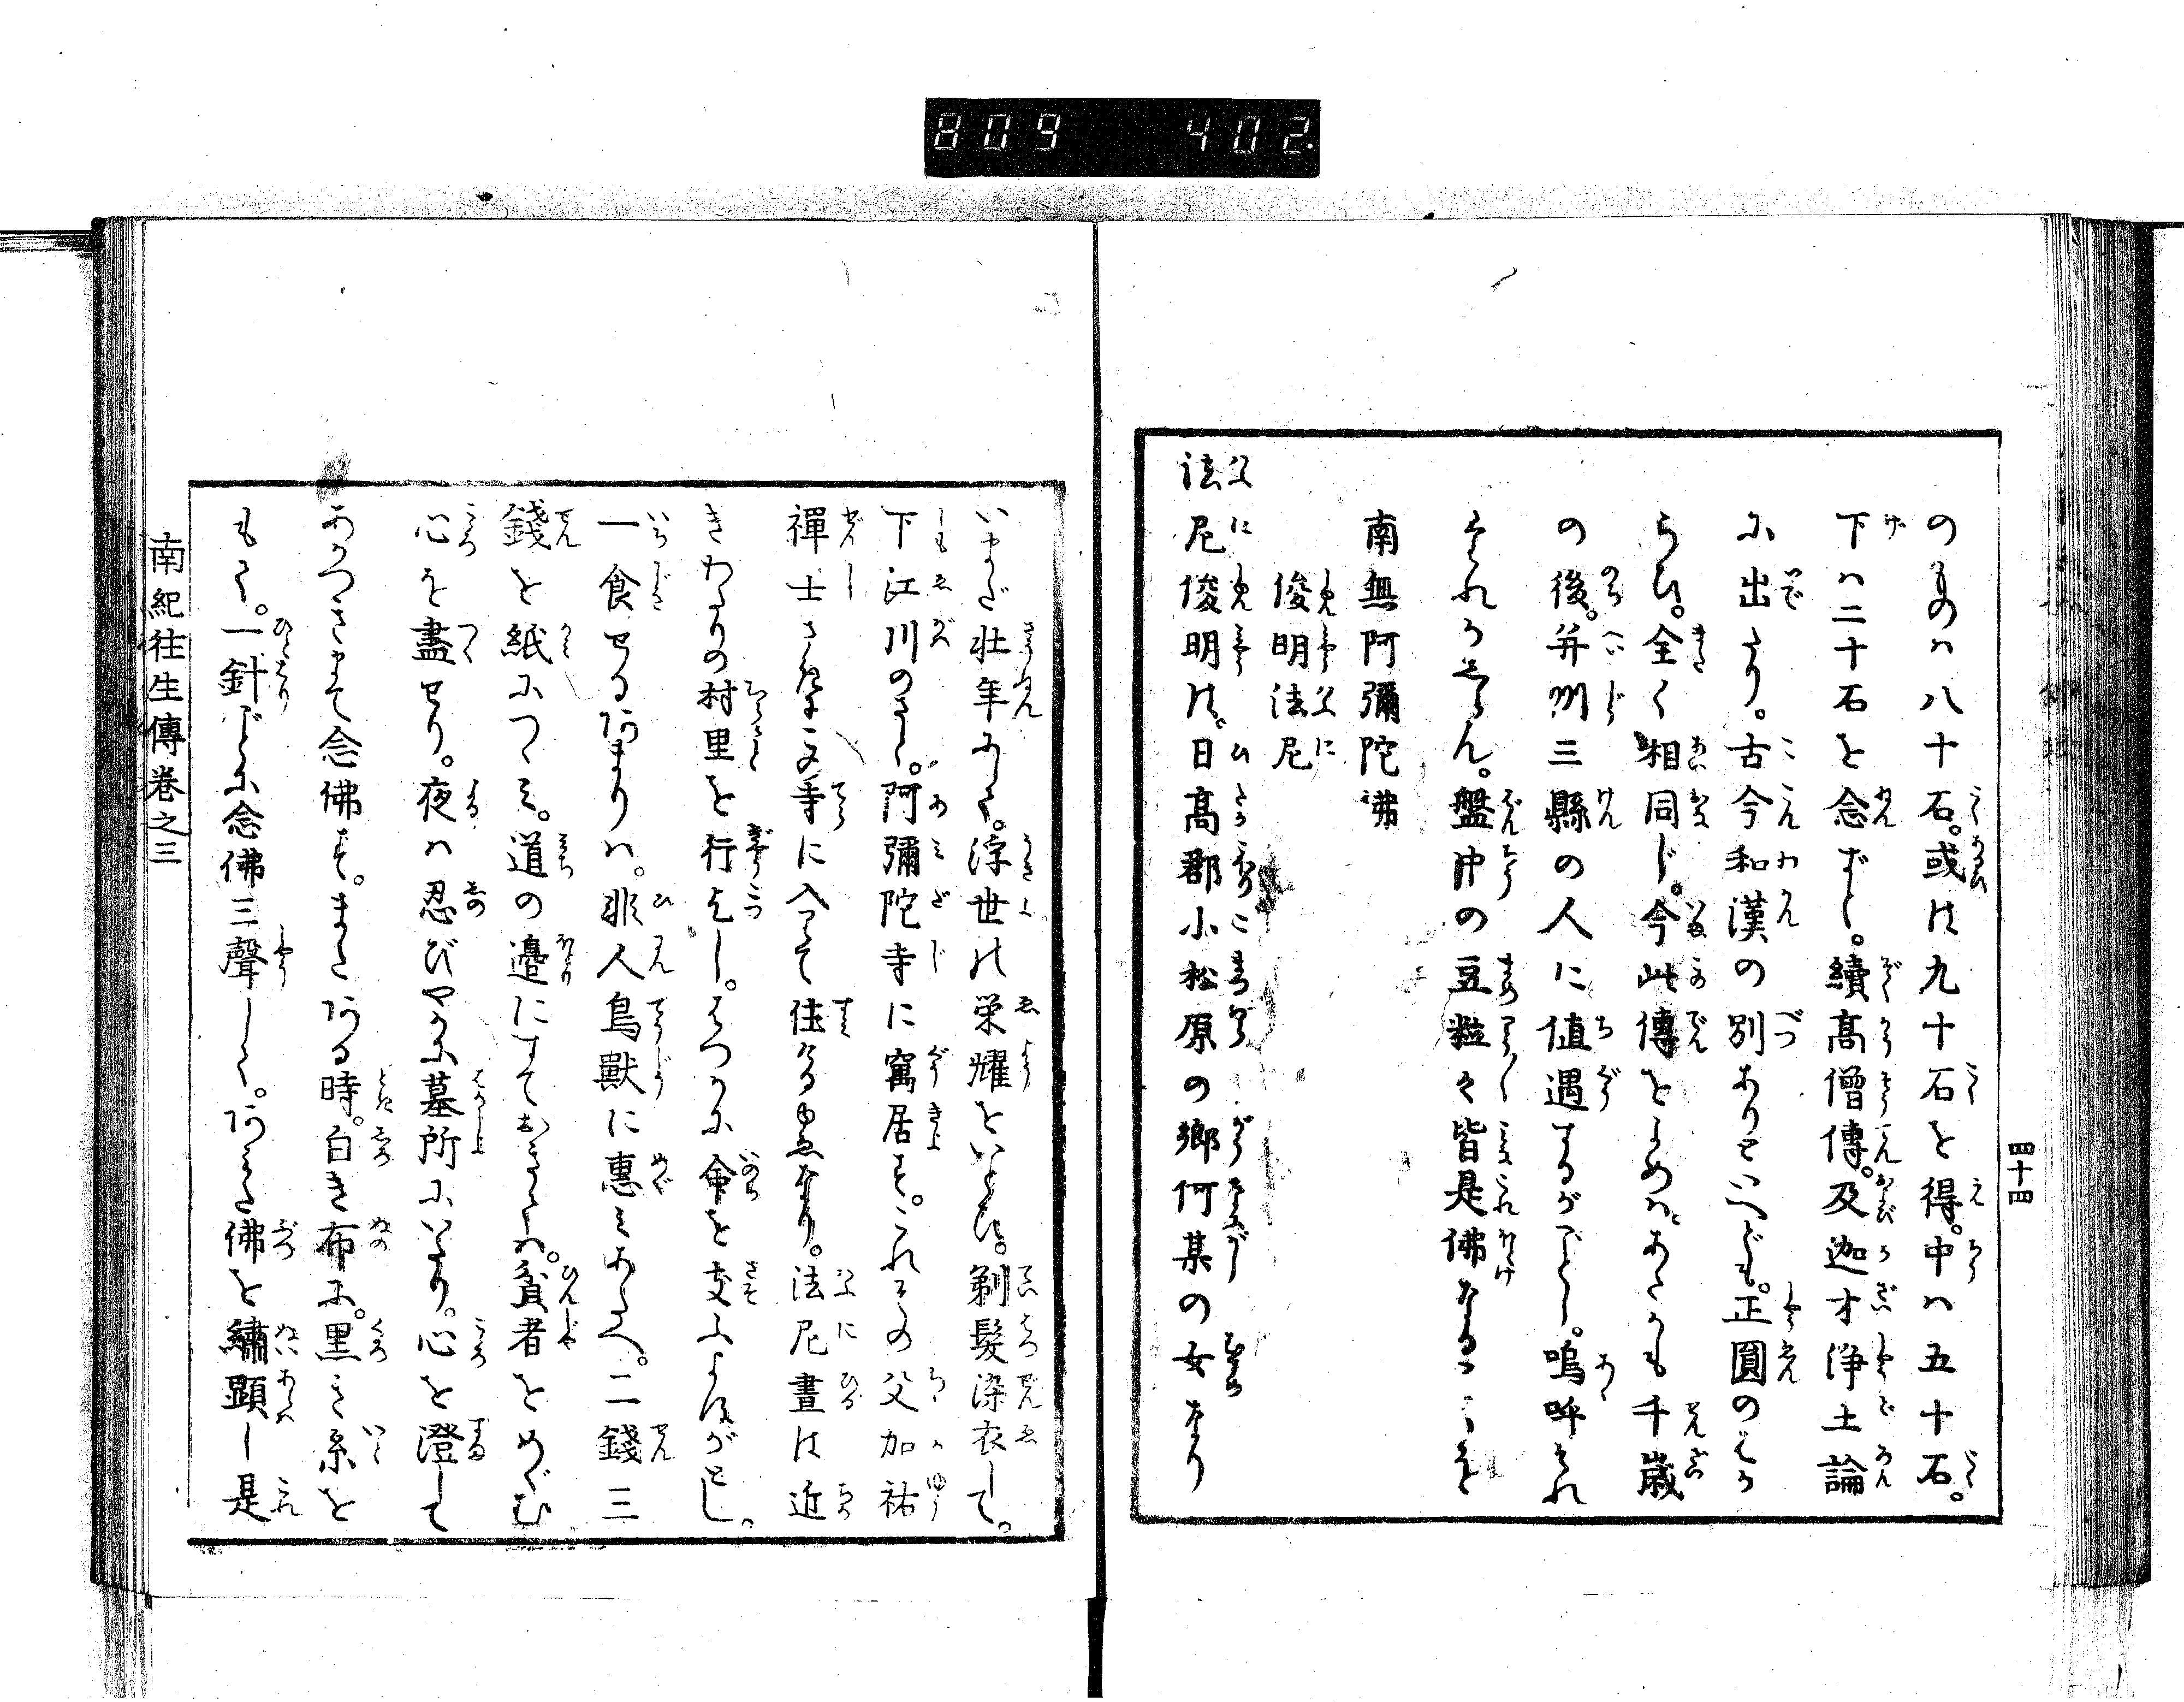 809 402
四十四
のものハ八十石。或は九十石を得。中ハ五十石。
下ハ二十石を念ずと。續高僧傳。及迦才浄土論
に出たり。古今和漢の別ありといへども。正圓のはか
らひ。全く相同じ。今此傳をよめバ。あたかも千歳
の後。并州三縣の人に値遇するがごとし。嗚呼それ
それかあらん。盤中の豆粒々皆是佛なることを
南無阿彌陀佛
俊明法尼
法尼俊明は。日高郡小松原の郷何某の女なり
いまだ壮年にして。浮世の栄耀をいとひ。剃髪染衣して。
下江川のさと。阿彌陀寺に寓居す。これその父加祐
禪士さきに又寺に入て住ける思なり。法尼晝は近
きわたりの村里を行乞し。はつかに命を支ふよすがとし。
一食せるあまりハ。非人鳥獣に惠ミあたへ。二錢三
錢を紙につゝミ。道の邉にすておきたるハ。貧者をめぐむ
心を盡せり。夜ハ忍びやかに墓所にいたり。心を澄して
あかつきまで念佛す。またある時。白き布に。黒き糸を
もて。一針ごとに念佛三聲して。あまた佛を繍顕し是
南紀往生傳巻之三